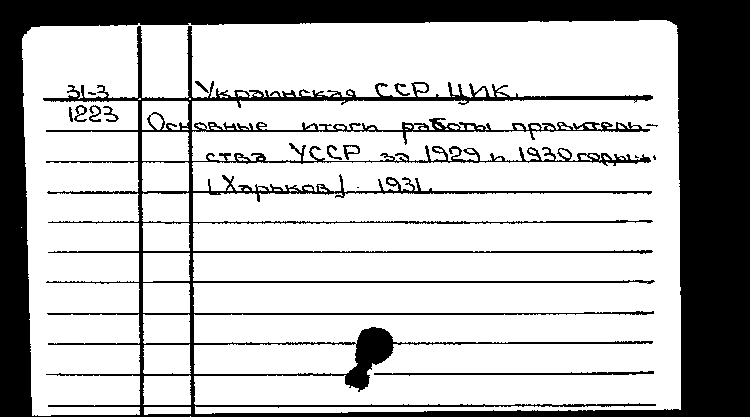 31-3 Украинская ССР. ЦИК.
1223 Основные итоги работы правитель-
ства УССР за 1929 и 1930 годы.
[Харьков] 1931.